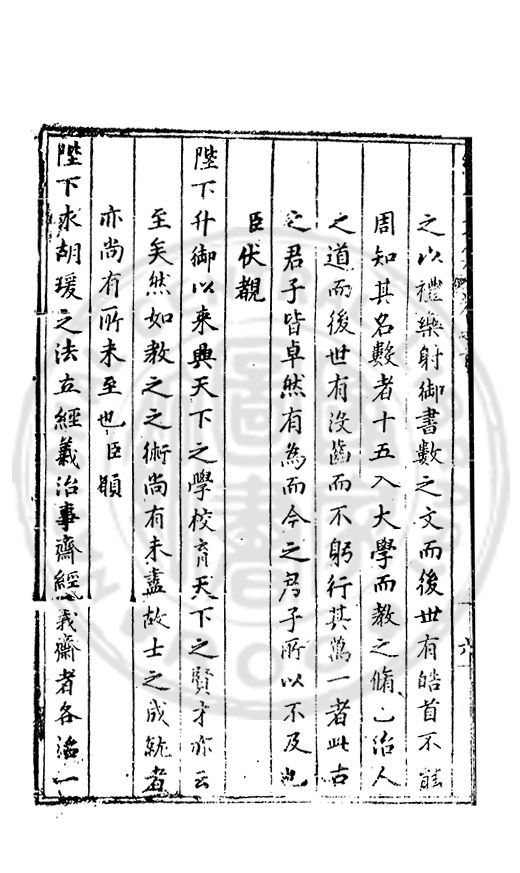 之以禮樂射御書數之文而後世有皓首不能
周知其名數者十五入大學而教之脩己治人
之道而後世有沒齒而不躬行其萬一者此古
之君子皆卓然有為而今之君子所以不及也
臣伏覩
陛下升御以來興天下之學校育天下之賢才亦云
至矣然如教之之術尚有未盡故士之成就者
亦尚有所未至也臣願
陛下求胡瑗之法立經義治事齋經義齋者各治一